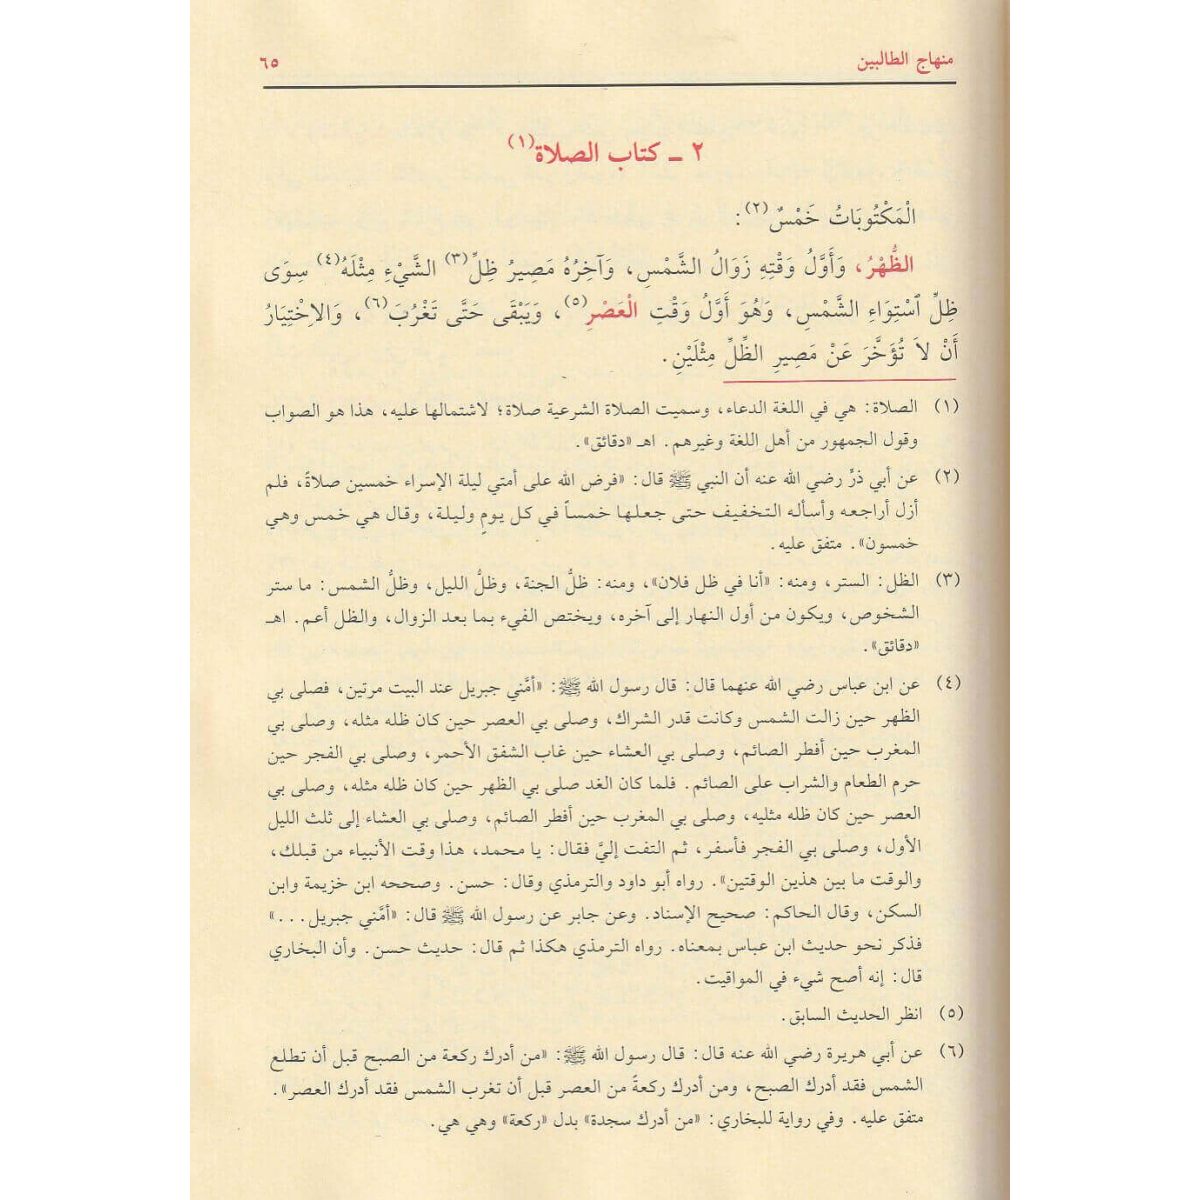 منهاج الطالبين ٦٥
٢ ــ كتاب الصلاة(١)
الْمَكْتُوبَاتُ خَمْسٌ(٢):
الظُّهْرُ، وَأَوَّلُ وَقْتِهِ زَوَالُ الشَّمْسِ، وَآخِرُهُ مَصِيرُ ظِلِّ(٣) الشَّيْءِ مِثْلَهُ(٤) سِوَى
ظِلِّ ٱسْتِوَاءِ الشَّمْسِ، وَهُوَ أَوَّلُ وَقْتِ الْعَصْرِ(٥)، وَيَبْقَى حَتَّى تَغْرُبَ(٦)، وَالاِخْتِيَارُ
أَنْ لاَ تُؤَخَّرَ عَنْ مَصِيرِ الظِّلِّ مِثْلَيْنِ.
(١) الصلاة: هي في اللغة الدعاء، وسميت الصلاة الشرعية صلاة؛ لاشتمالها عليه، هذا هو الصواب
وقول الجمهور من أهل اللغة وغيرهم. اهـ «دقائق».
(٢) عن أبي ذرٍّ رضي الله عنه أن النبي ﷺ قال: «فرض الله على أمتي ليلة الإسراء خمسين صلاةً، فلم
أزل أراجعه وأسأله التخفيف حتى جعلها خمساً في كل يومٍ وليلة، وقال هي خمس وهي
خمسون». متفق عليه.
(٣) الظل: الستر، ومنه: «أنا في ظل فلان»، ومنه: ظلُّ الجنة، وظلُّ الليل، وظلُّ الشمس: ما ستر
الشخوص، ويكون من أول النهار إلى آخره، ويختص الفيء بما بعد الزوال، والظل أعم. اهـ
«دقائق».
(٤) عن ابن عباس رضي الله عنهما قال: قال رسول الله ﷺ: «أمَّني جبريل عند البيت مرتين، فصلى بي
الظهر حين زالت الشمس وكانت قدر الشراك، وصلى بي العصر حين كان ظله مثله، وصلى بي
المغرب حين أفطر الصائم، وصلى بي العشاء حين غاب الشفق الأحمر، وصلى بي الفجر حين
حرم الطعام والشراب على الصائم. فلما كان الغد صلى بي الظهر حين كان ظله مثله، وصلى بي
العصر حين كان ظله مثليه، وصلى بي المغرب حين أفطر الصائم، وصلى بي العشاء إلى ثلث الليل
الأول، وصلى بي الفجر فأسفر، ثم التفت إليَّ فقال: يا محمد، هذا وقت الأنبياء من قبلك،
والوقت ما بين هذين الوقتين». رواه أبو داود والترمذي وقال: حسن. وصححه ابن خزيمة وابن
السكن، وقال الحاكم: صحيح الإسناد. وعن جابر عن رسول الله ﷺ قال: «أمَّني جبريل...»
فذكر نحو حديث ابن عباس بمعناه. رواه الترمذي هكذا ثم قال: حديث حسن. وأن البخاري
قال: إنه أصح شيء في المواقيت.
(٥) انظر الحديث السابق.
(٦) عن أبي هريرة رضي الله عنه قال: قال رسول الله ﷺ: «من أدرك ركعة من الصبح قبل أن تطلع
الشمس فقد أدرك الصبح، ومن أدرك ركعةً من العصر قبل أن تغرب الشمس فقد أدرك العصر».
متفق عليه. وفي رواية للبخاري: «من أدرك سجدة» بدل «ركعة» وهي هي.